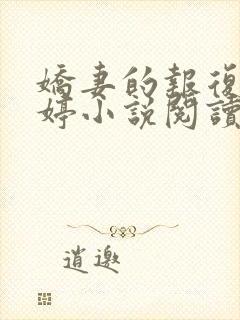 嬌妻的報復
婷小說閱讀
逍遨